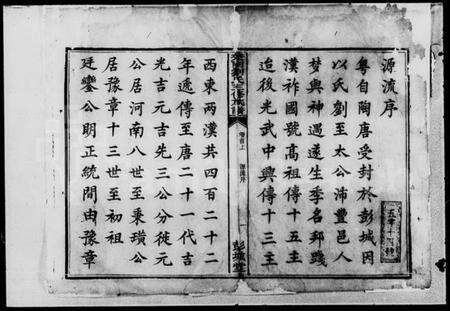 源流序
粵自陶唐受封於彭城因
以氏劉至太公沛豐邑人
夢與神遇遂生季名邦踐
漢祚國號高祖傳十五主
迨後光武中興傳十三主
卷首上 源流序
彭城堂
西東兩漢共四百二十二
年遞傳至唐二十一代吉
光吉元吉先三公分徙元
公居河南八世至秉璜公
居豫章十三世至初祖
廷鑾公明正統間由豫章